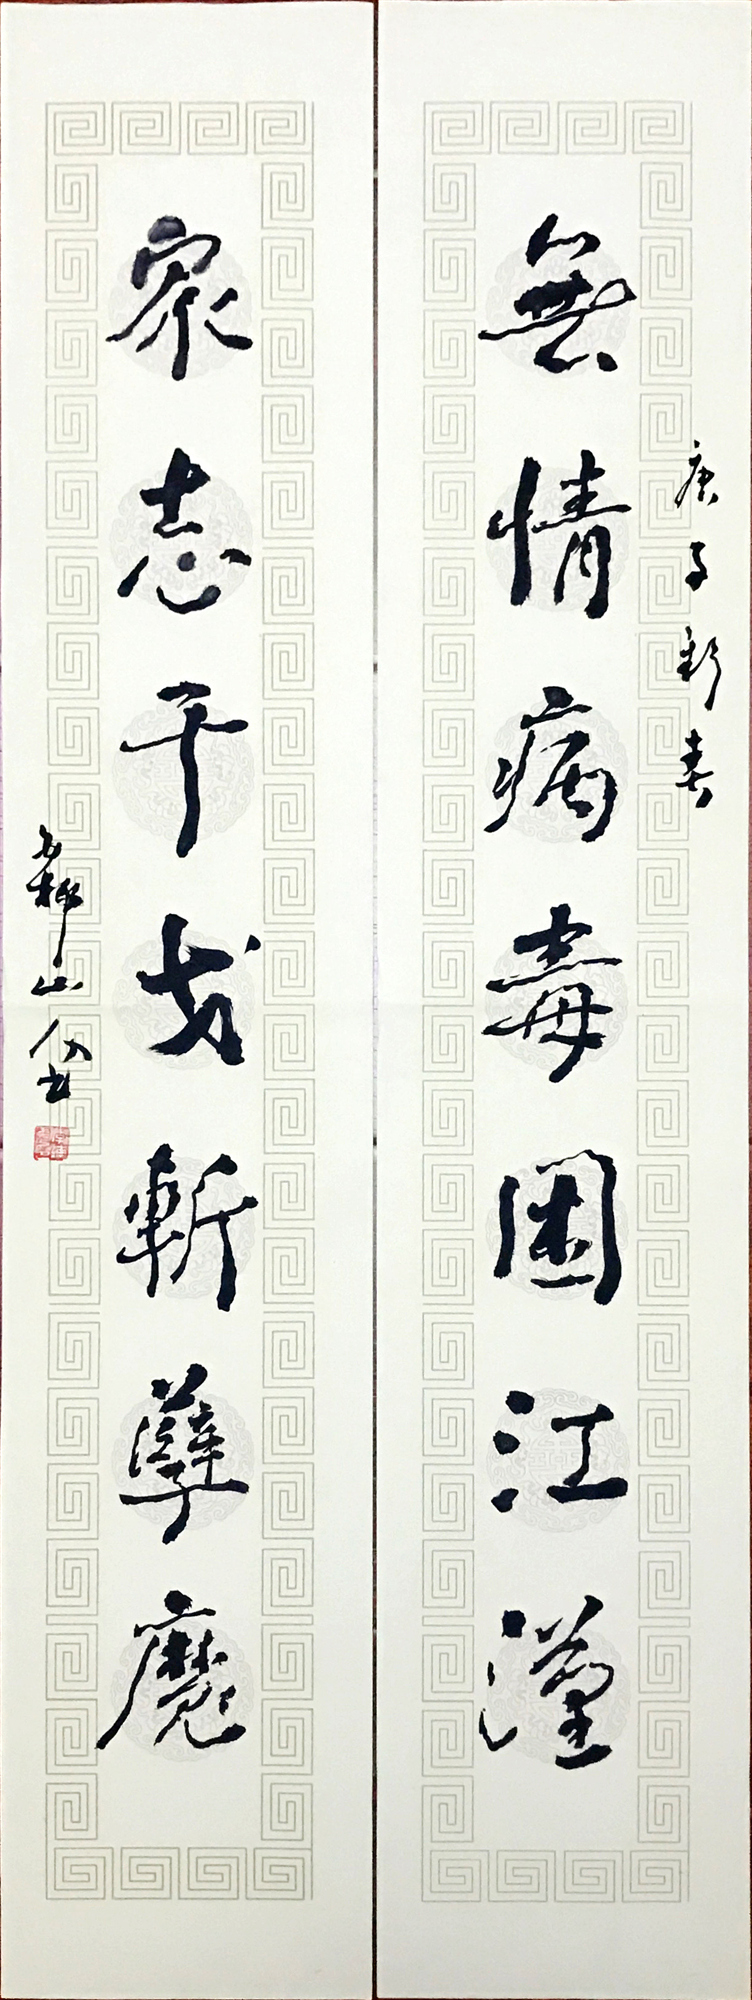 庚子新春
無情病毒困江漢
衆志干戈斬孽魔
山人书